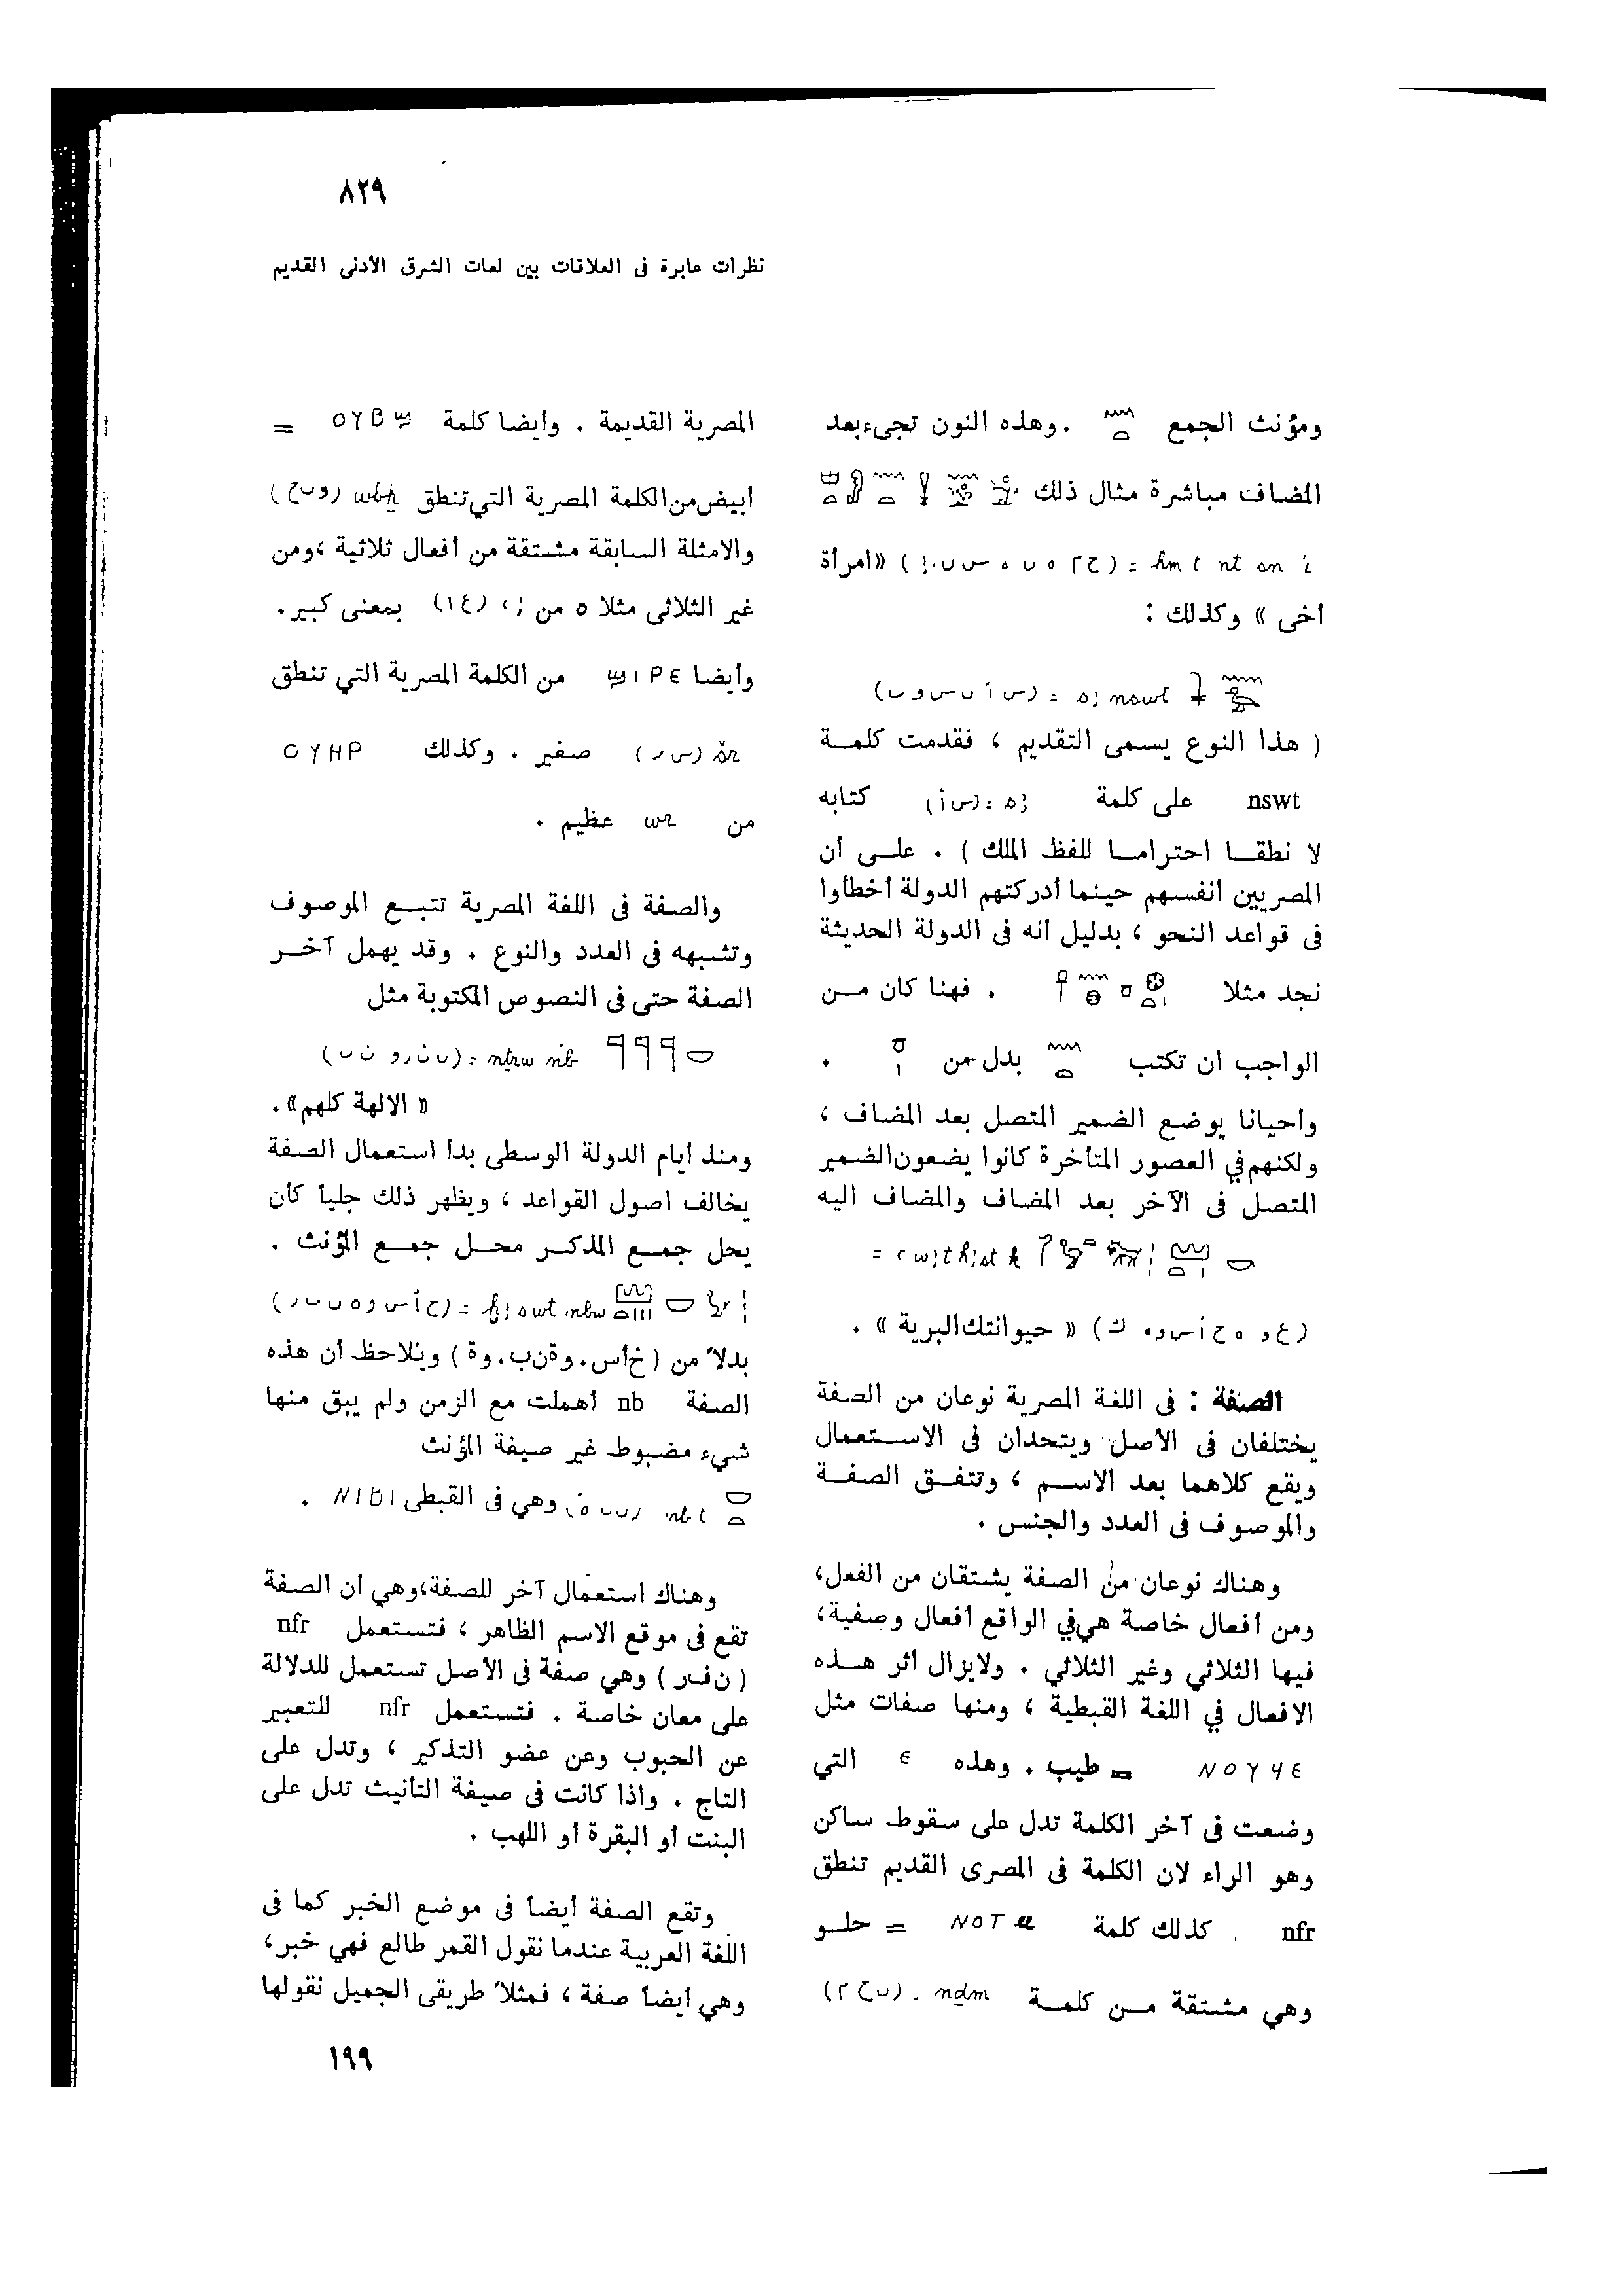 ٨٢٩
نظرات عابرة فى العلاقات بين لغات الشرق الأدنى القديم
ومؤنث الجمع . وهذه النون تجىء بعد
المضاف مباشرة مثال ذلك
hmt nt sn «امرأة
أخى » وكذلك :
nswt
( هذا النوع يسمى التقديم ، فقدمت كلمــة
nswt على كلمة كتابه
لا نطقــا احترامــا للفظ الملك ) . علــى أن
المصريين أنفسهم حينما أدركتهم الدولة أخطأوا
فى قواعد النحو ، بدليل أنه فى الدولة الحديثة
نجد مثلا . فهنا كان مــن
الواجب ان تكتب بدل من .
وأحيانا يوضع الضمير المتصل بعد المضاف ،
ولكنهم في العصور المتأخرة كانوا يضعون الضمير
المتصل فى الآخر بعد المضاف والمضاف اليه
=
« حيوانتك البرية » .
الصفة : فى اللغة المصرية نوعان من الصفة
يختلفان فى الأصل ويتحدان فى الاســتعمال
ويقع كلاهما بعد الاســم ، وتتفــق الصفــة
والموصوف فى العدد والجنس .
وهناك نوعان من الصفة يشتقان من الفعل،
ومن أفعال خاصة هي في الواقع أفعال وصفية،
فيها الثلاثي وغير الثلاثي . ولايزال أثر هــذه
الافعال في اللغة القبطية ، ومنها صفات مثل
ⲚⲞⲨϤⲈ = طيب . وهذه ⲉ التي
وضعت فى آخر الكلمة تدل على سقوط ساكن
وهو الراء لان الكلمة فى المصرى القديم تنطق
nfr . كذلك كلمة ⲚⲞⲦⲘ = حلــو
وهي مشتقة مــن كلمــة nḏm
المصرية القديمة . وأيضا كلمة ⲞⲨⲂϢ =
أبيض من الكلمة المصرية التي تنطق wbḫ
والامثلة السابقة مشتقة من أفعال ثلاثية ، ومن
غير الثلاثى مثلا من بمعنى كبير .
وأيضا ϢⲒⲢⲈ من الكلمة المصرية التي تنطق
šr صغير . وكذلك ⲞⲨⲎⲢ
من wr عظيم .
والصفة فى اللغة المصرية تتبــع الموصوف
وتشبهه فى العدد والنوع . وقد يهمل آخــر
الصفة حتى فى النصوص المكتوبة مثل
nṯrw nb
« الالهة كلهم» .
ومنذ أيام الدولة الوسطى بدأ استعمال الصفة
يخالف اصول القواعد ، ويظهر ذلك جلياً كأن
يحل جمــع المذكــر محــل جمــع المؤنث .
nbw
بدلاً من (خأس.وةنب.وة) ويلاحظ أن هذه
الصفة nb أهملت مع الزمن ولم يبق منها
شيء مضبوط غير صيغة المؤنث
nbt وهي فى القبطى ⲚⲒⲂⲒ .
وهناك استعمال آخر للصفة،وهي أن الصفة
تقع فى موقع الاسم الظاهر ، فتستعمل nfr
(نفـر) وهي صفة فى الأصل تستعمل للدلالة
على معان خاصة . فتستعمل nfr للتعبير
عن الحبوب وعن عضو التذكير ، وتدل على
التاج . واذا كانت فى صيغة التأنيث تدل على
البنت أو البقرة أو اللهب .
وتقع الصفة أيضاً فى موضع الخبر كما فى
اللغة العربية عندما نقول القمر طالع فهي خبر،
وهي أيضاً صفة ، فمثلاً طريقى الجميل نقولها
١٩٩